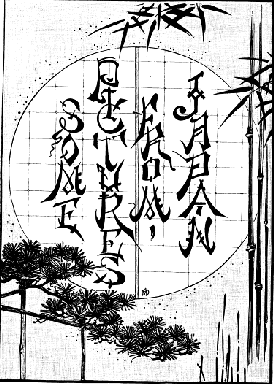 SOME
PICTURES
FROM
JAPAN